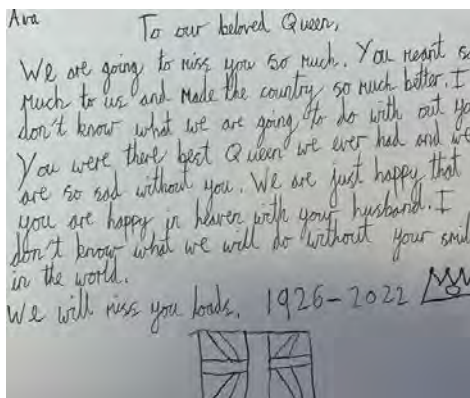 Ava
To our beloved Queen,
We are going to miss you so much. You meant so
much to us and made the country so much better. I
don't know what we are going to do with out yo
You were there best Queen we ever had and we
are so sad without you. We are just happy that
you are happy in heaven with your husband. I
don't know what we will do without your smil
in the world.
We will miss you loads. 1926-2022